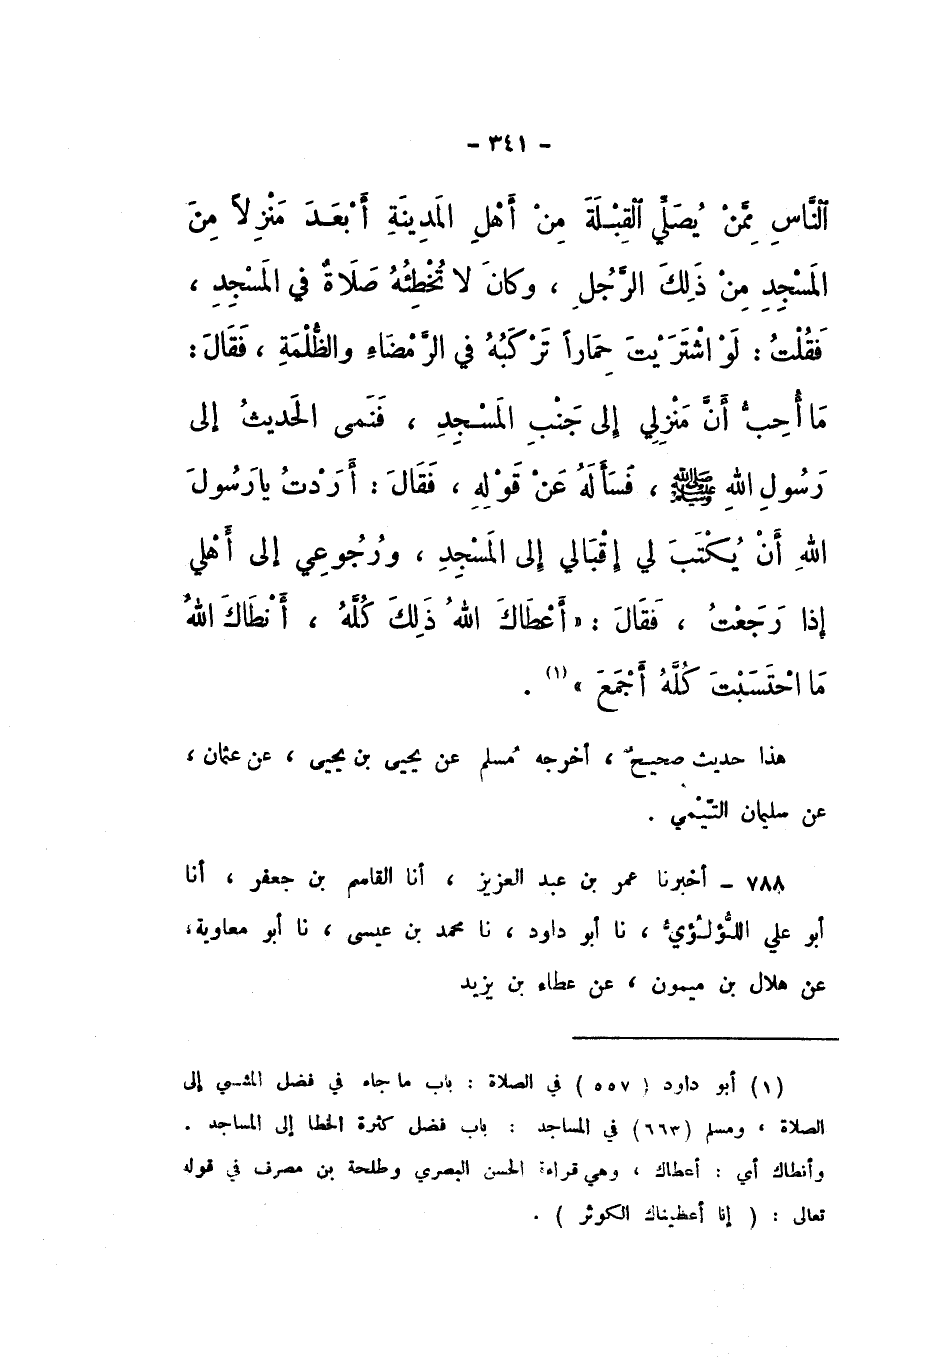 - ٣٤١ -
ٱلنَّاسِ مِمَّنْ يُصَلِّي ٱلقِبْلَةَ مِنْ أَهْلِ المَدِينَةِ أَبْعَدَ مَنْزِلاً مِنَ
المَسْجِدِ مِنْ ذَلِكَ الرَّجُلِ ، وكانَ لا تُخْطِئُهُ صَلَاةٌ في المَسْجِدِ ،
فَقُلْتُ : لَوْ اشْتَرَيْتَ حِمَاراً تَرْكَبُهُ في الرَّمْضَاءِ والظُّلْمَةِ ، فَقَالَ :
مَا أُحِبُّ أَنَّ مَنْزِلِي إلى جَنْبِ المَسْجِدِ ، فَنَمى الحَديثُ إلى
رَسُولِ اللهِ ﷺ ، فَسَأَلَهُ عَنْ قَوْلِهِ ، فَقَالَ : أَرَدْتُ يارَسُولَ
اللهِ أَنْ يُكْتَبَ لي إِقْبَالي إِلى المَسْجِدِ ، ورُجُوعِي إلى أَهْلي
إذا رَجَعْتُ ، فَقَالَ : « أَعْطَاكَ اللهُ ذَلِكَ كُلَّهُ ، أَنْطَاكَ اللهُ
مَا احْتَسَبْتَ كُلَّهُ أَجْمَعَ » (١) .
هذا حديث صحيحٌ ، أخرجه مُسلم عن يحيى بن يحيى ، عن عثمان ،
عن سليمان التَّيْمي .
٧٨٨ - أخبرنا عمر بن عبد العزيز ، أنا القاسم بن جعفر ، أنا
أبو علي اللُّؤلُؤيُّ ، نا أبو داود ، نا محمد بن عيسى ، نا أبو معاوية ،
عن هلال بن ميمون ، عن عطاء بن يزيد
(١) أبو داود ( ٥٥٧ ) في الصلاة : باب ما جاء في فضل المشي إلى
الصلاة ، ومسلم (٦٦٣) في المساجد : باب فضل كثرة الخطا إلى المساجد .
وأنطاك أي : أعطاك ، وهي قراءة الحسن البصري وطلحة بن مصرف في قوله
تعالى : ( إنا أعطيناك الكوثر ) .